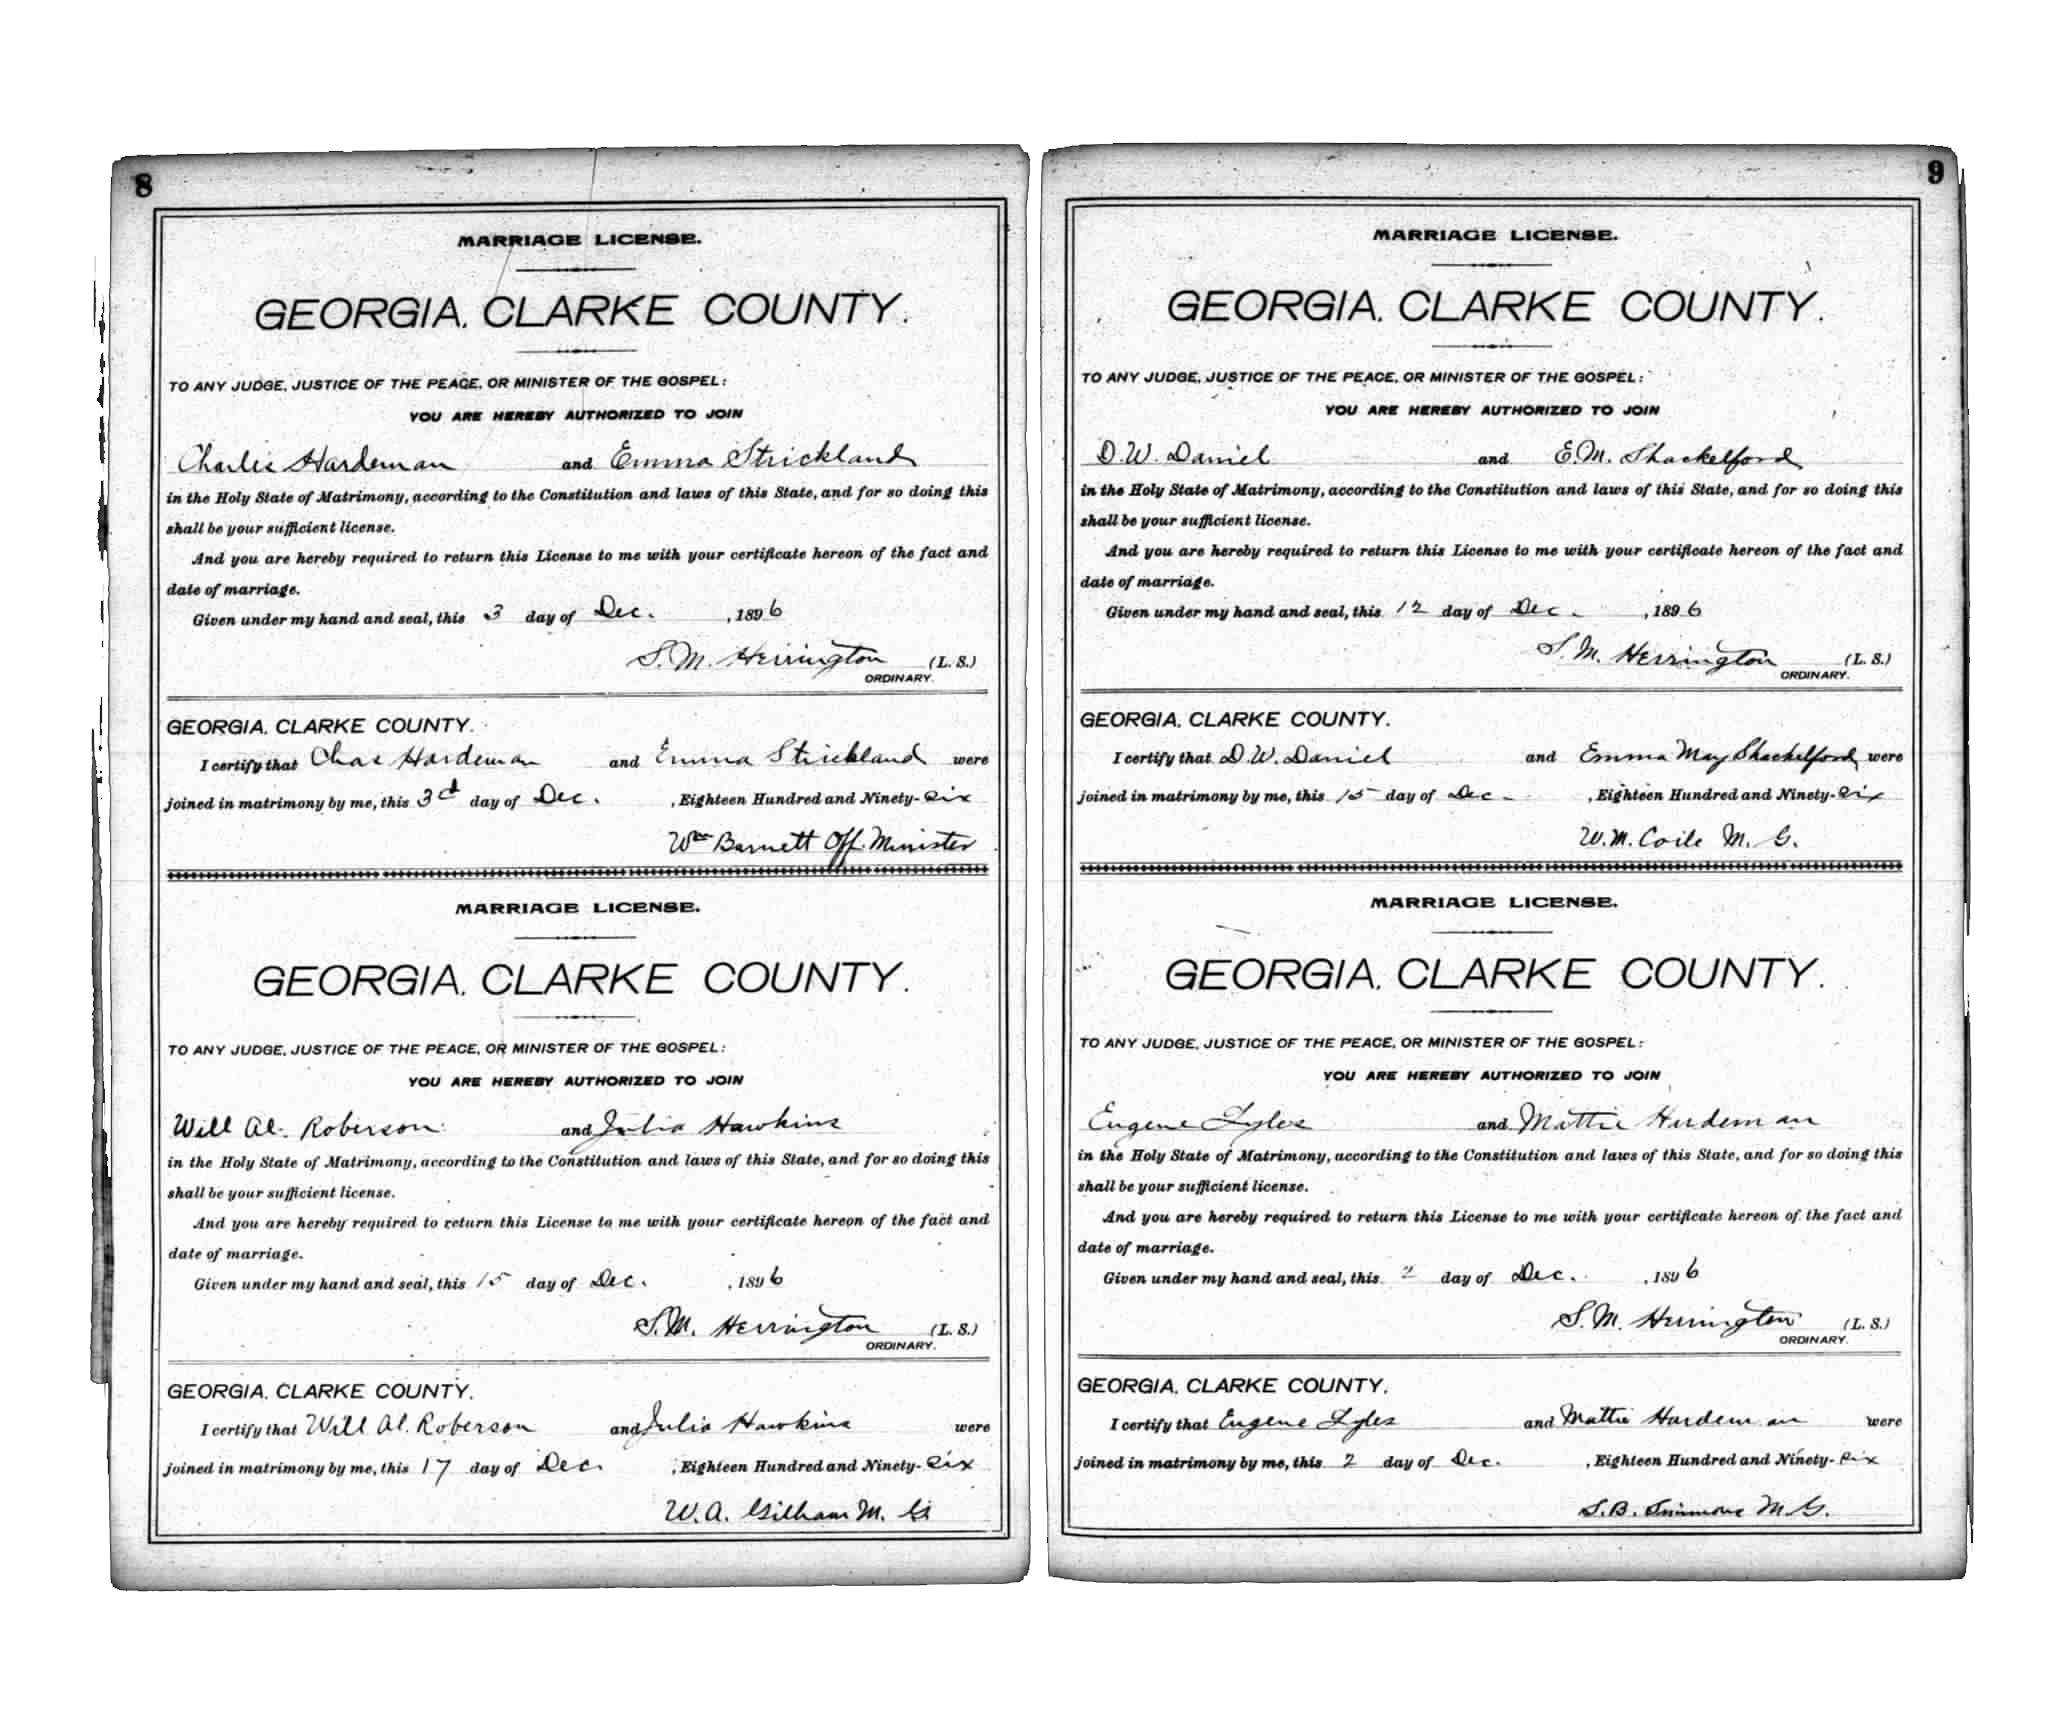 8
MARRIAGE LICENSE.
GEORGIA, CLARKE COUNTY.
TO ANY JUDGE, JUSTICE OF THE PEACE, OR MINISTER OF THE GOSPEL:
YOU ARE HEREBY AUTHORIZED TO JOIN
Charlie Hardeman and Emma Strickland
in the Holy State of Matrimony, according to the Constitution and laws of this State, and for so doing this
shall be your sufficient license.
And you are hereby required to return this License to me with your certificate hereon of the fact and
date of marriage.
Given under my hand and seal, this 3 day of Dec. , 1896
S. M. Herrington (L. S.)
ORDINARY.
GEORGIA, CLARKE COUNTY.
I certify that Chas Hardeman and Emma Strickland were
joined in matrimony by me, this 3d day of Dec. , Eighteen Hundred and Ninety-six
Wm Barnett Off. Minister
MARRIAGE LICENSE.
GEORGIA, CLARKE COUNTY.
TO ANY JUDGE, JUSTICE OF THE PEACE, OR MINISTER OF THE GOSPEL:
YOU ARE HEREBY AUTHORIZED TO JOIN
Will Al. Roberson and Julia Hawkins
in the Holy State of Matrimony, according to the Constitution and laws of this State, and for so doing this
shall be your sufficient license.
And you are hereby required to return this License to me with your certificate hereon of the fact and
date of marriage.
Given under my hand and seal, this 15 day of Dec. , 1896
S. M. Herrington (L. S.)
ORDINARY.
GEORGIA, CLARKE COUNTY.
I certify that Will Al. Roberson and Julia Hawkins were
joined in matrimony by me, this 17 day of Dec. , Eighteen Hundred and Ninety-six
W. A. Gilham M. G
9
MARRIAGE LICENSE.
GEORGIA, CLARKE COUNTY.
TO ANY JUDGE, JUSTICE OF THE PEACE, OR MINISTER OF THE GOSPEL:
YOU ARE HEREBY AUTHORIZED TO JOIN
D. W. Daniel and E. M. Shackelford
in the Holy State of Matrimony, according to the Constitution and laws of this State, and for so doing this
shall be your sufficient license.
And you are hereby required to return this License to me with your certificate hereon of the fact and
date of marriage.
Given under my hand and seal, this 12 day of Dec. , 1896
S. M. Herrington (L. S.)
ORDINARY.
GEORGIA, CLARKE COUNTY.
I certify that D. W. Daniel and Emma May Shackelford were
joined in matrimony by me, this 15 day of Dec. , Eighteen Hundred and Ninety-six
W. M. Coile M. G.
MARRIAGE LICENSE.
GEORGIA, CLARKE COUNTY.
TO ANY JUDGE, JUSTICE OF THE PEACE, OR MINISTER OF THE GOSPEL:
YOU ARE HEREBY AUTHORIZED TO JOIN
Eugene Lyles and Mattie Hardeman
in the Holy State of Matrimony, according to the Constitution and laws of this State, and for so doing this
shall be your sufficient license.
And you are hereby required to return this License to me with your certificate hereon of the fact and
date of marriage.
Given under my hand and seal, this 2 day of Dec. , 1896
S. M. Herrington (L. S.)
ORDINARY.
GEORGIA, CLARKE COUNTY.
I certify that Eugene Lyles and Mattie Hardeman were
joined in matrimony by me, this 2 day of Dec. , Eighteen Hundred and Ninety-six
S. B. Simmons M. G.